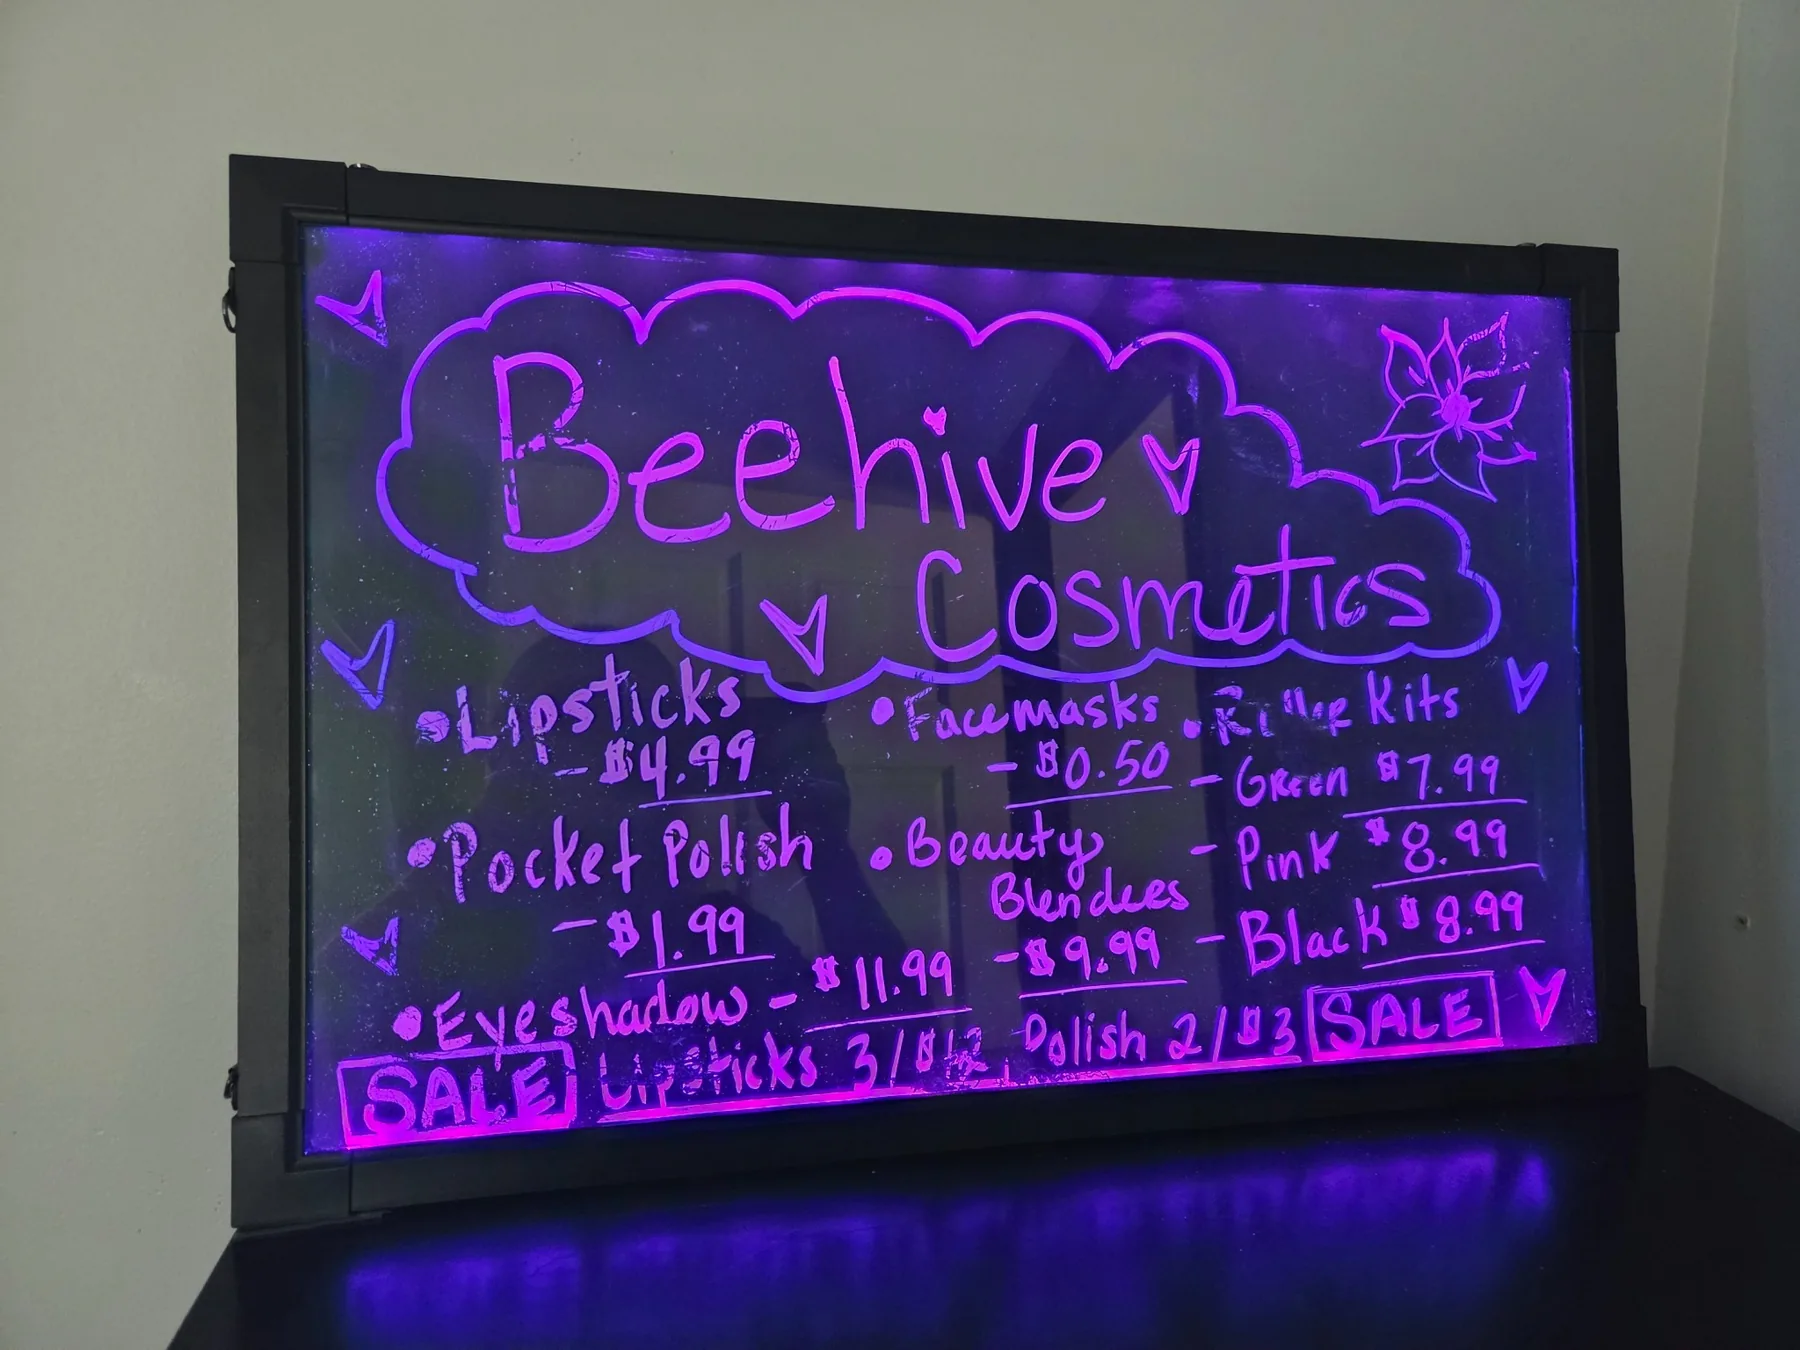 Beehive
Cosmetics
• Lipsticks
- $4.99
• Pocket Polish
- $1.99
• Eyeshadow - $11.99
• Facemasks
- $0.50
• Beauty
Blenders
- $9.99
• Kits
- Green $7.99
- Pink $8.99
- Black $8.99
SALE Lipsticks 3/$12 Polish 2/$3 SALE